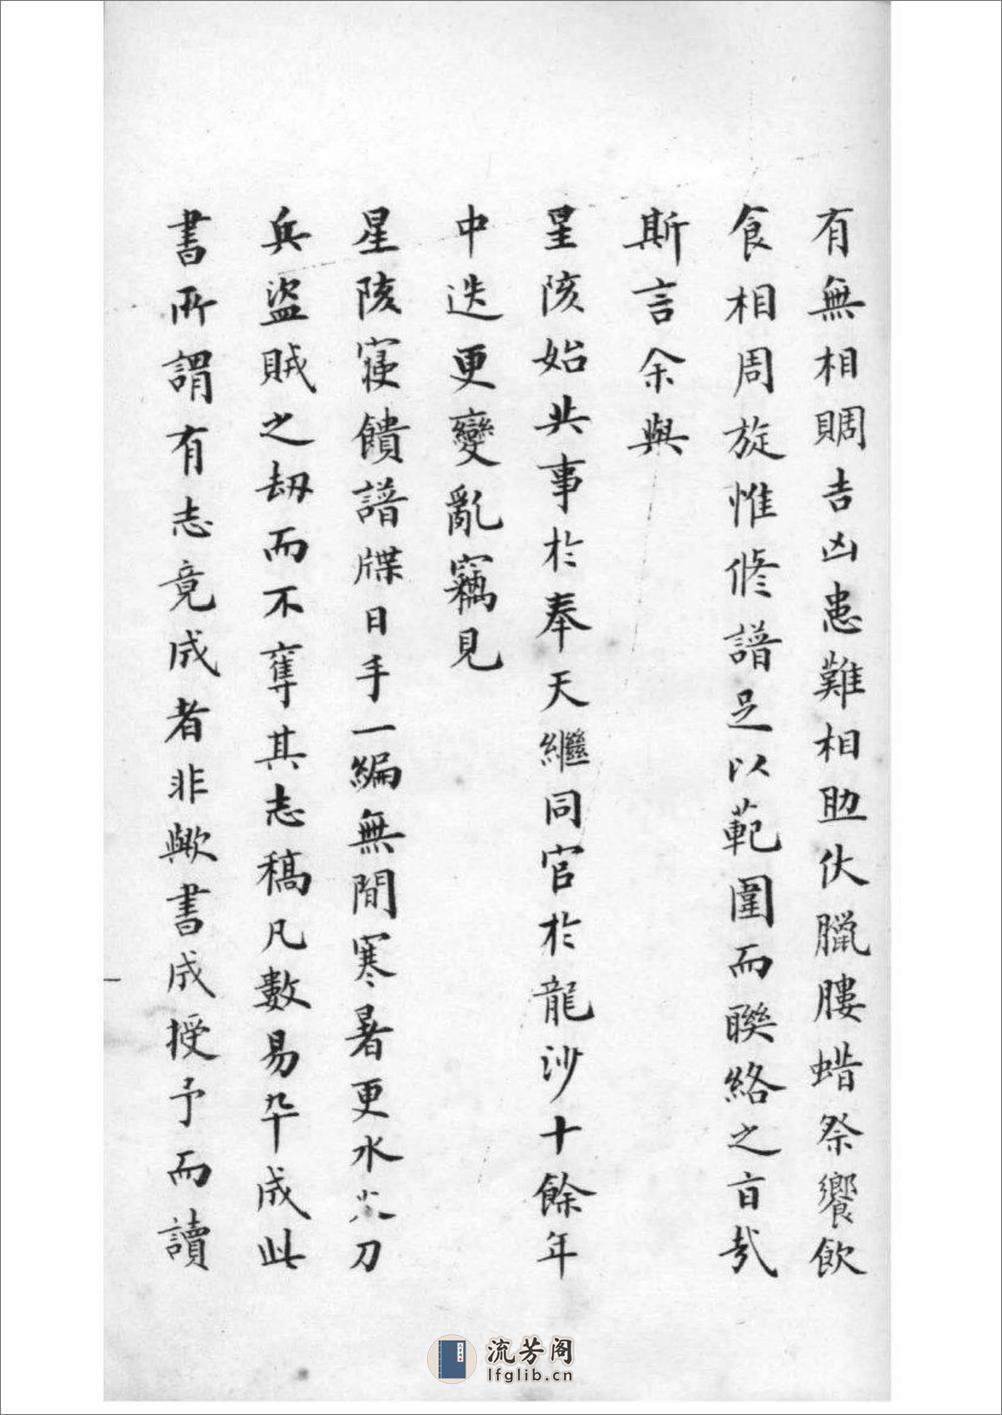 有無相賙吉凶患難相助伏臘膢蜡祭饗飲
食相周旋惟修譜足以範圍而聯絡之旨哉
斯言余與
星陔始共事於奉天繼同官於龍沙十餘年
中迭更變亂竊見
星陔寢饋譜牒日手一編無間寒暑更水火刀
兵盜賊之刼而不奪其志稿凡數易卒成此
書所謂有志竟成者非歟書成授予而讀
流芳阁
lfglib.cn